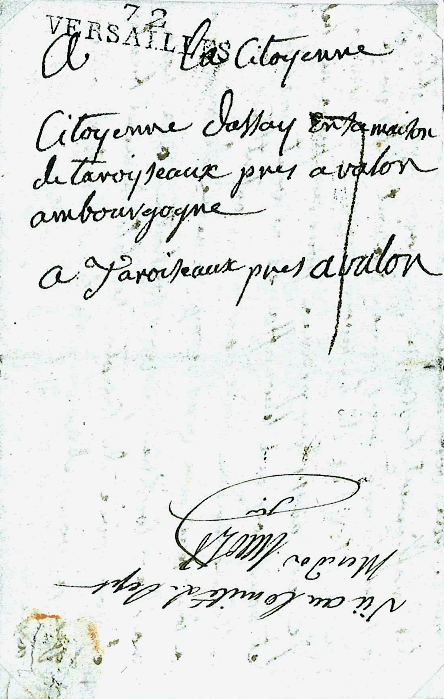 72
VERSAILLES
A la Citoyenne
Citoyenne dassay en sa maison
de taroiseaux pres avalon
ambourgogne
a Taroiseaux pres avalon
7
Vü au Comité d. Dept